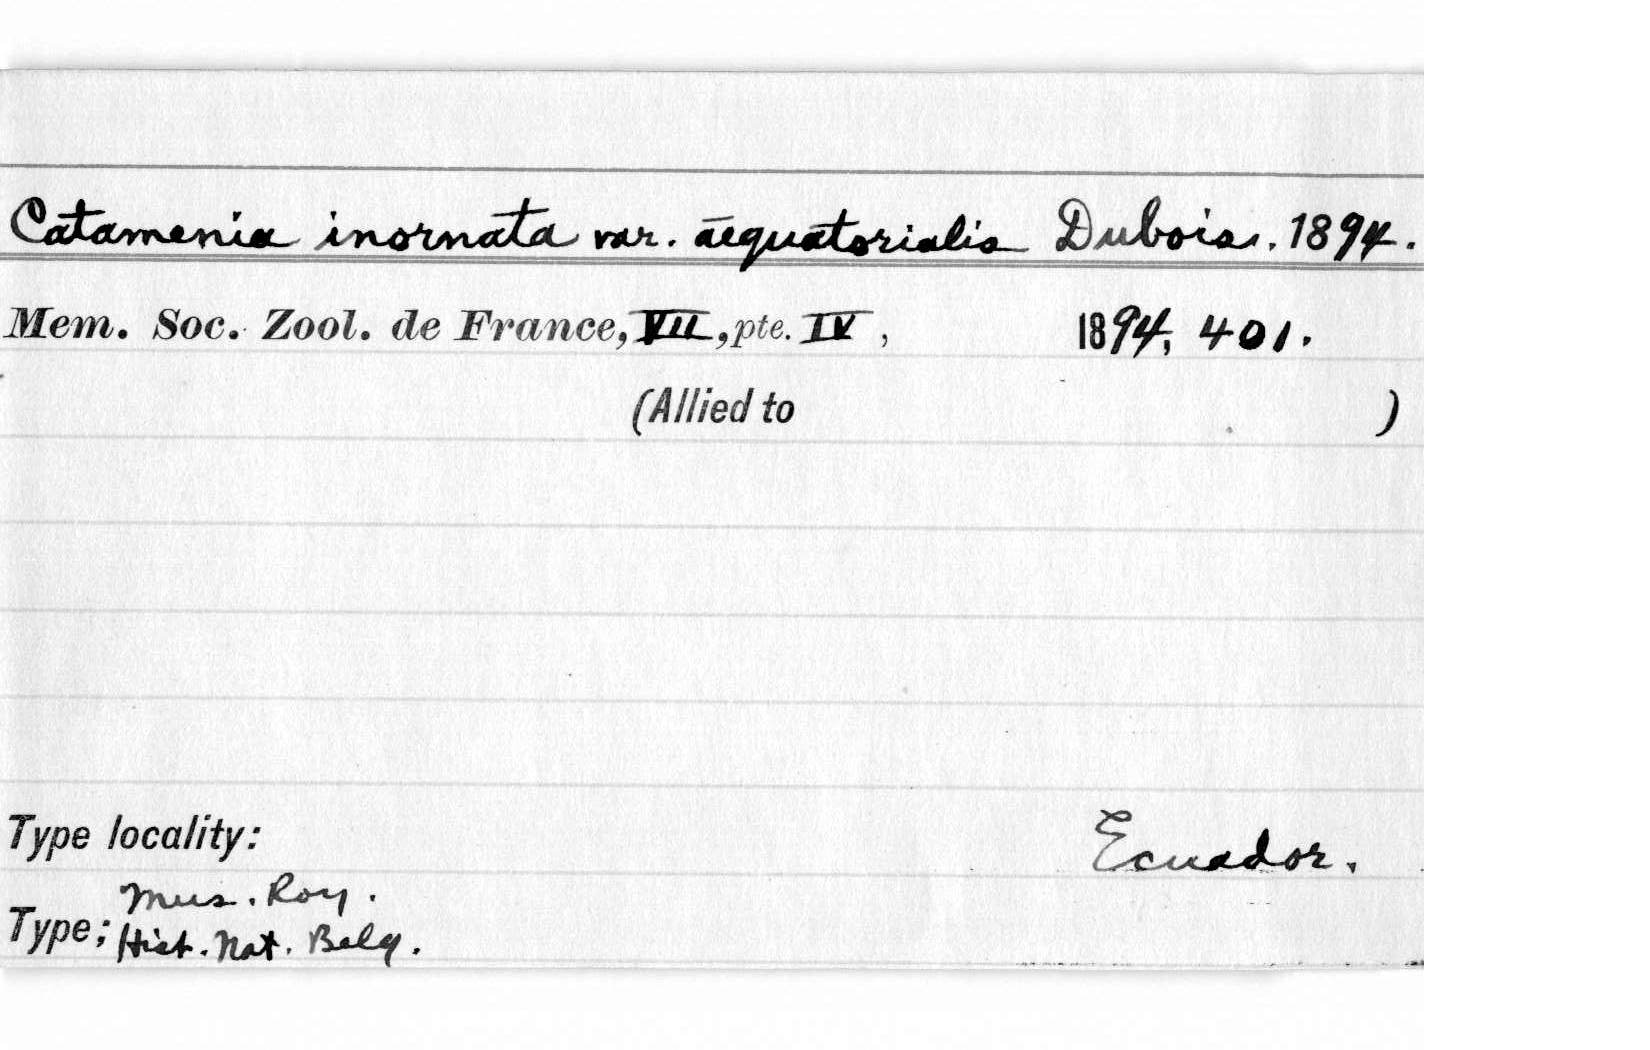 Catamenia inornata var. aequatorialis Dubois. 1894.
Mem. Soc. Zool. de France, VII, pte. IV, 1894, 401.
(Allied to )
Type locality: Ecuador.
Mus. Roy.
Type; Hist. Nat. Belg.